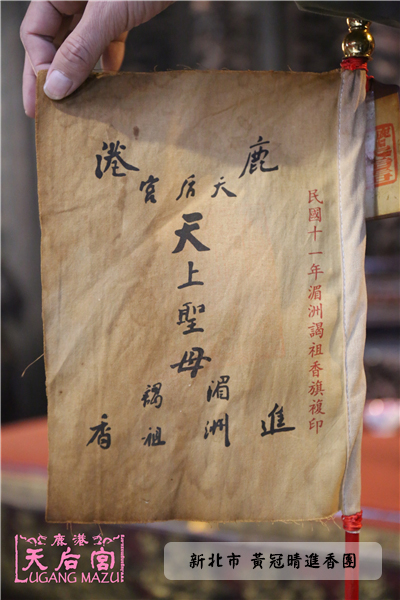 鹿港
天后宮
天上聖母
進
湄洲
謁祖
香
民國十一年湄洲謁祖香旗複印
鹿港
天后宮
LUGANG MAZU
新北市 黃冠晴進香團